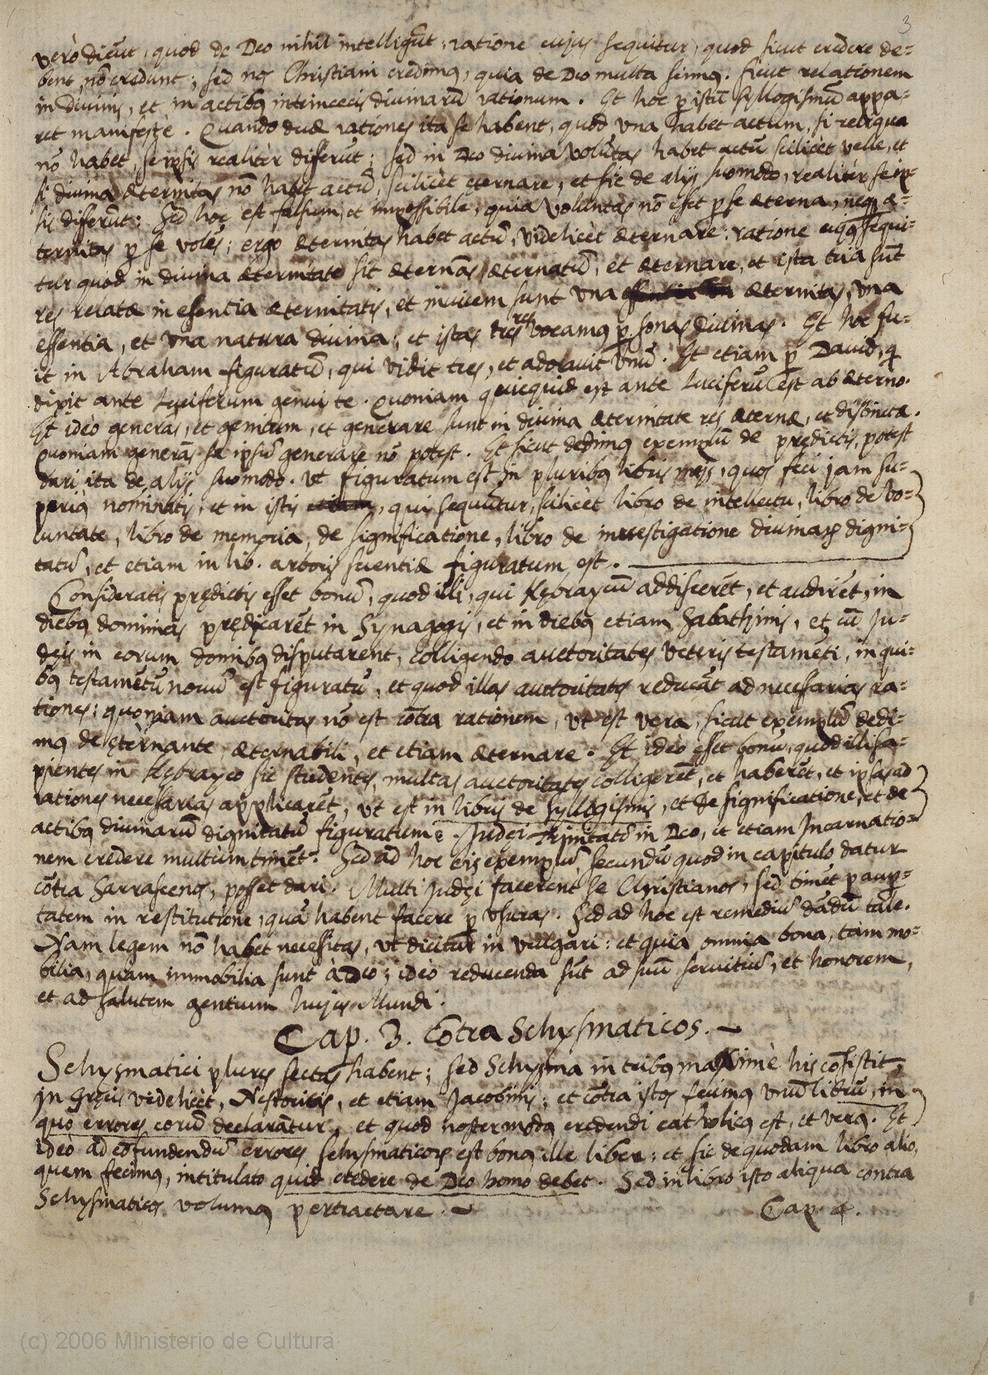 3
verò dicūt, quod de Deo nihil intelligūt, ratione cujus sequitur, quod sicut credere de=
bent, nō credunt; sed nos Christiani credimꝰ, quia de Deo multa scimꝰ. sicut relationem
in divinis, et in actibꝰ intrinsecis divinarū rationum. Et hoc p istū syllogismū appa=
ret manifeste. Quando duæ rationes ita se habent, quod una habet actum, si reliqua
nō habet, se ipsis realitèr diferūt; sed in Deo divina volūtas habet actū scilicet velle, et
si divina æternitas nō habet actū, scilicèt æternare, et sic de alijs suomodo, realitèr se ip=
sis diferūt; Sed hoc est falsum, et impossibile, quia voluntas nō esset p se æterna, neqꝫ æ=
ternitas p se volēs; ergo æternitas habet actū, videlicèt æternare: ratione cujꝰ sequi=
tur quod in divina æternitate sit æternās, æternatū, et æternare, et ista tria sūt
res relatæ in esencia æternitatis, et invicem sunt una æternitas, una
essentia, et una natura divina, et istas tres res vocamꝰ psonas divinas. Et hoc fu=
it in Abraham figuratū, qui vidit tres, et adoravit unū. Et etiam p David, q
dixit ante Luciferum genui te. Quoniam quicquid est ante Luciferū est ab æterno.
Et ideò generās, et genitum, et generare sunt in divina æternitate res æternæ, et distinctæ.
Quoniam generās se ipsū generare nō potest. Et sicut dedimꝰ exemplū de prędictis, potest
dari ita de alijs suomodo. Ut figuratum est in pluribꝰ libris meis, quos feci jam su=
periꝰ nominatis, et in istis, qui sequūtur, scilicet libro de intellectu, libro de vo=
luntate, libro de memoria, de significatione, libro de investigatione divinarꝫ digni=
tatū, et etiam in lib. arboris scientiæ figuratum est.
Consideratis prędictis esset bonū, quod illi, qui Hębraycū addiscerēt, et audirēt, in
diebꝰ dominicis prędicarēt in Synagogis, et in diebꝰ etiam Sabathinis, et cū Ju=
dęis in eorum domibꝰ disputarent, colligendo auctoritates veteris testamēti, in qui=
bꝰ testamētū novū est figuratū, et quod illas auctoritates reducāt ad necessarias ra=
tiones: quoniam auctoritas nō est cōtra rationem, ut est vera, sicut exemplū dedi=
mꝰ de æternante æternabili, et etiam æternare. Et ideò esset bonū, quod illi sa=
pientes in Hebrayco sic studentes, multas auctoritates colligerēt, et haberēt, et ipsas ad
rationes necessarias applicarēt, ut est in libris de Syllogismis, et de significatione, et de
actibꝰ divinarū dignitatū figuratum ē. Judęi Trinitatē in Deo, et etiam Incarnatio=
nem credere multùm timēt. Sed ad hoc eis exemplū secundū quod in capitulo datur
cōtra Sarracenos, posset dari. Multi Judęi facerent se Christianos, sed timēt paup=
tatem in restitutione, quā habent facere p usuras. Sed ad hoc est remediū dādū tale.
Nam legem nō habet necessitas, ut dicitur in vulgari: et quia omnia bona, tam mo=
bilia, quam immobilia sunt à Deo; ideò reducenda sūt ad suū servitiū, et honorem,
et ad salutem gentium hujus Mundi.
Cap. 3. Cōtra Schysmaticos.
Schysmatici plures sectas habent; sed Schysma in tribꝰ maximè his cōsistit,
in Gręcis videlicèt, Nestorinis, et etiam Jacobinis; et cōtra istos fecimꝰ unū librū, in
quo errores eorū declarātur, et quod noster modꝰ credendi catholicꝰ est, et verꝰ. Et
ideò ad cōfundendū errores schysmaticorꝫ est bonꝰ ille liber; et sic de quodam libro alio,
quem fecimꝰ, intitulato quid credere de Deo homo debet. Sed in libro isto aliqua contra
Schysmaticos volumꝰ pertractare.
Cap. 4.
(c) 2006 Ministerio de Cultura